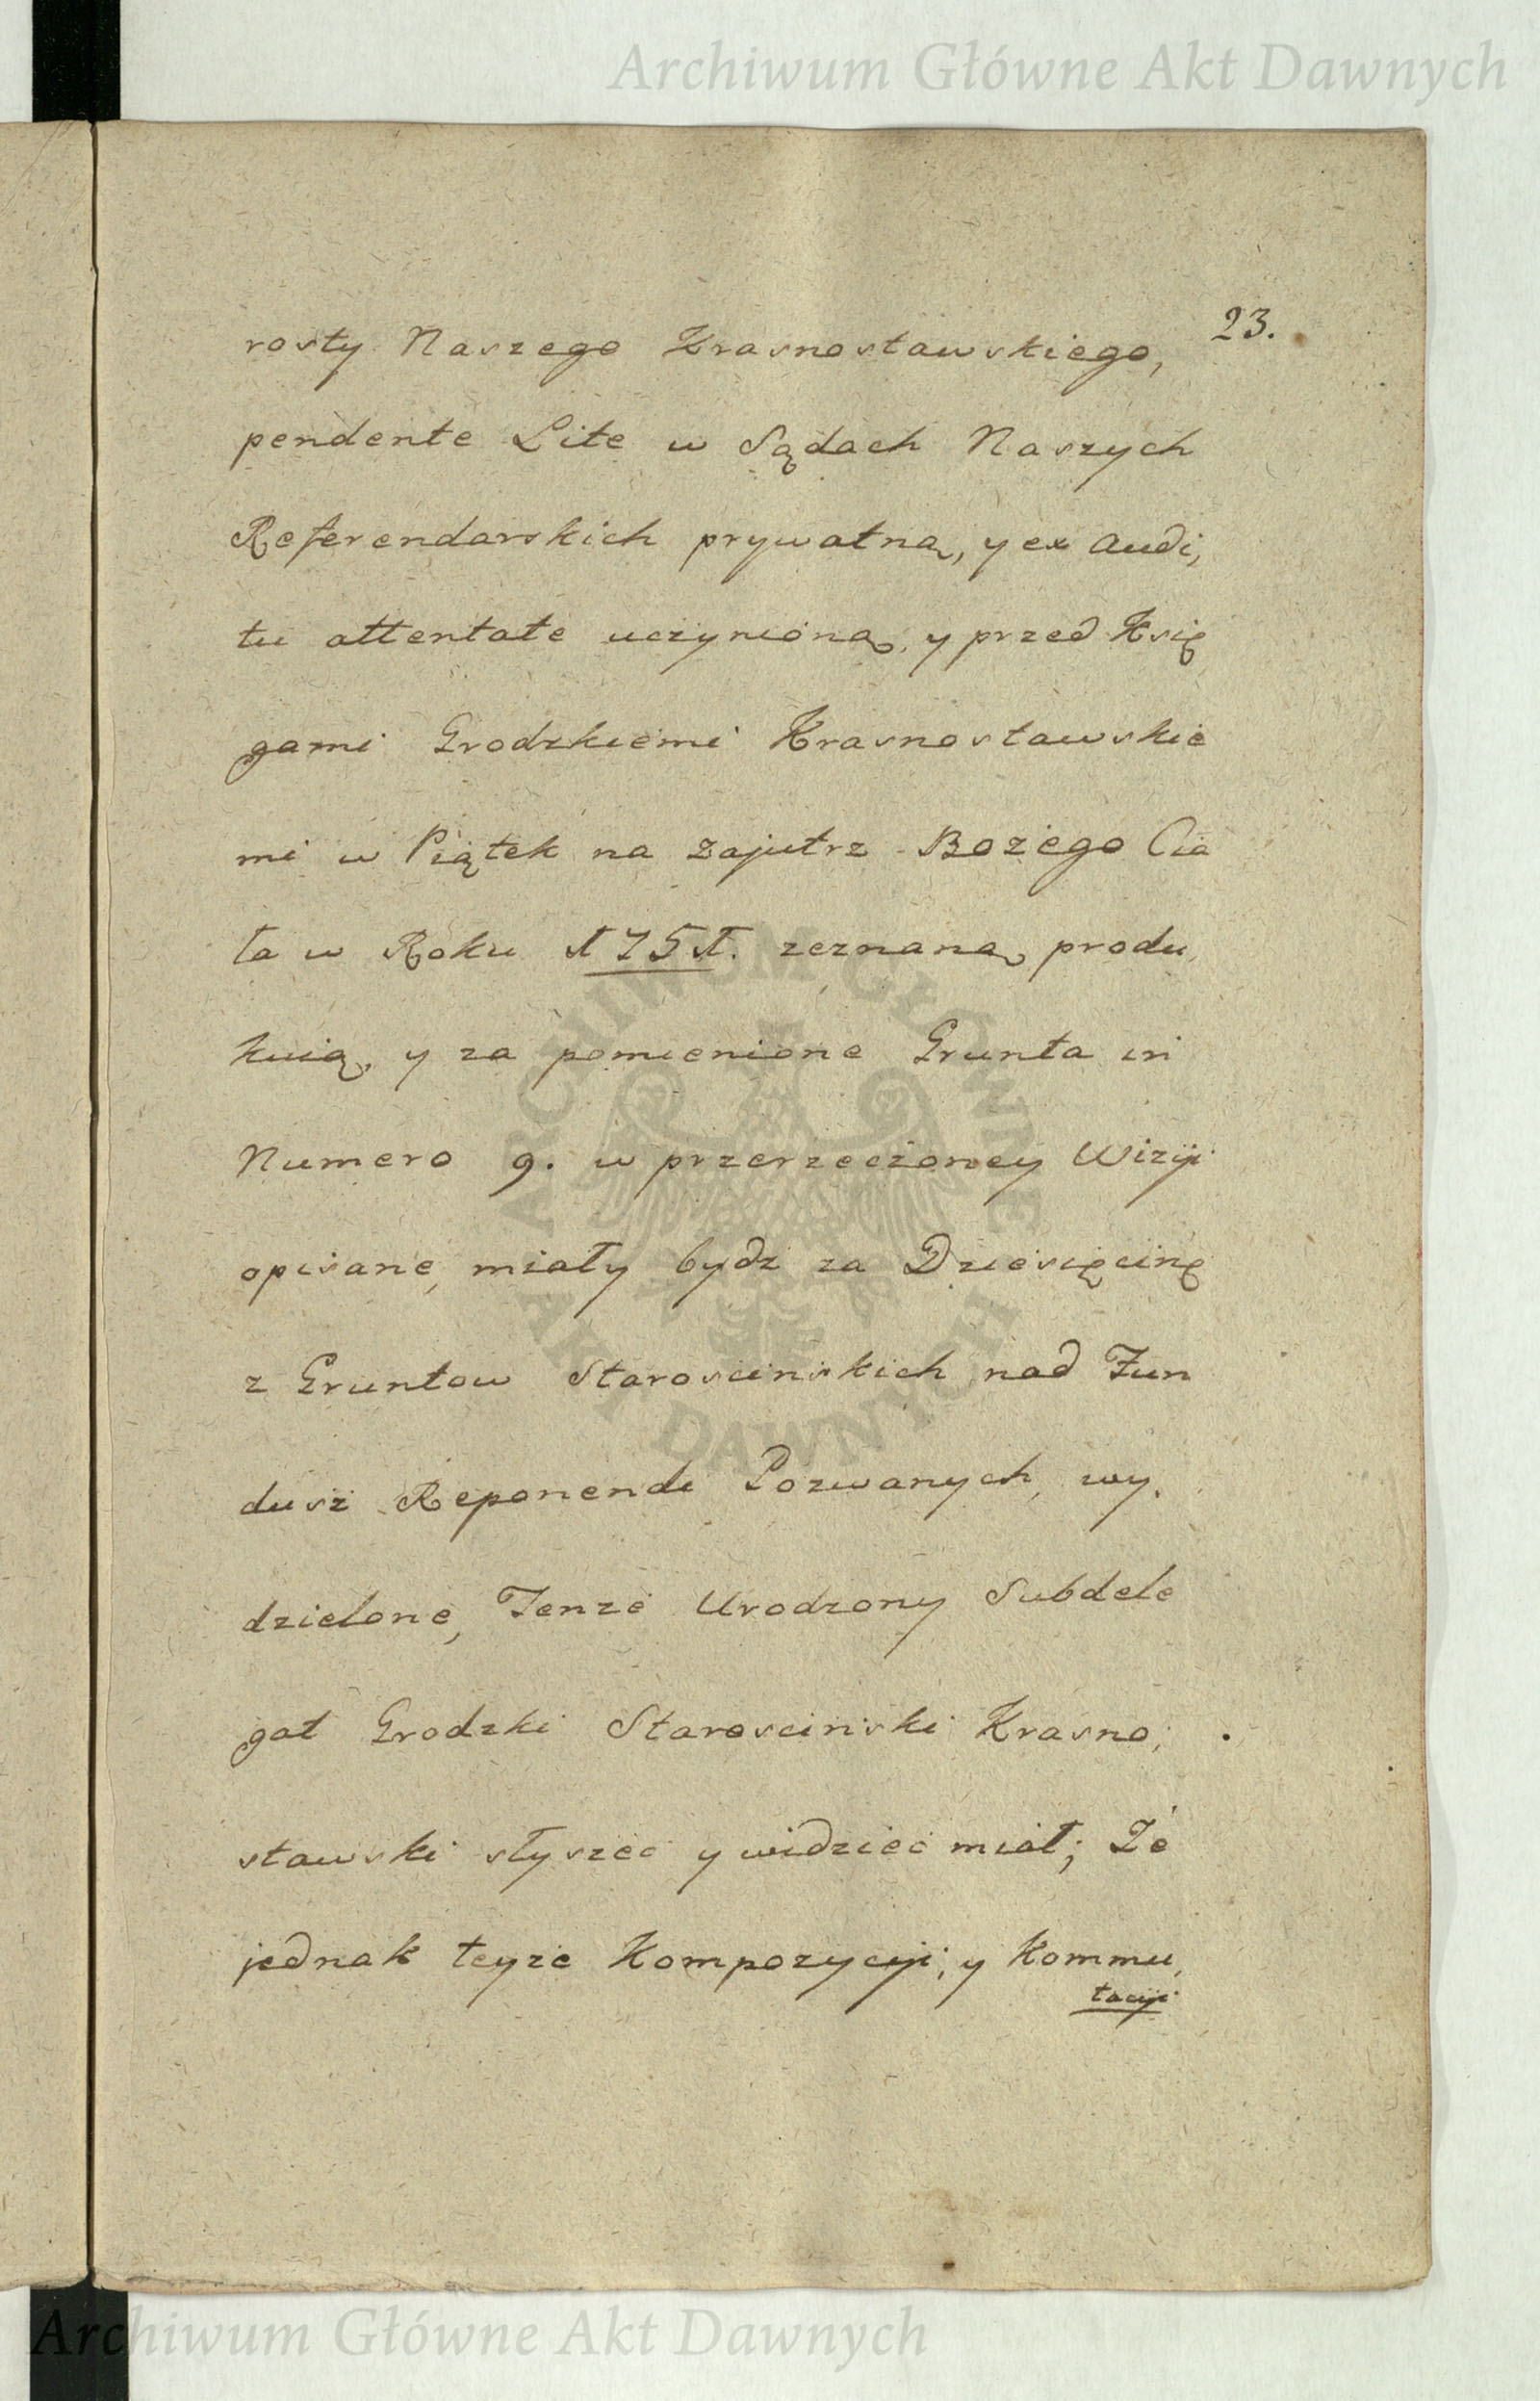 Archiwum Główne Akt Dawnych
23.
rosty Naszego Krasnostawskiego,
pendente Lite w Sądach Naszych
Referendarskich prywatną, y ex Audi,
tu attentate uczynioną, y przed Księ
gami Grodzkiemi Krasnostawskie
mi w Piątek na zajutrz Bożego Cia
ła w Roku 1751. zeznaną produ,
kuią, y za pomienione Grunta in
Numero 9. w przerzeczoney Wizyi
opisane, miały bydz za Dziesięcinę
z Gruntow Staroscinskich nad Fun
dusz Reponendi Pozwanych, wy,
dzielone, Tenże Urodzony Subdele
gat Grodzki Starosciński Krasno,
stawski słyszeć y widzieć miał; Że
jednak teyże Kompozycyi, y Kommu,
tacyi
ARCHIWUM GŁÓWNE
AKT DAWNYCH
Archiwum Główne Akt Dawnych